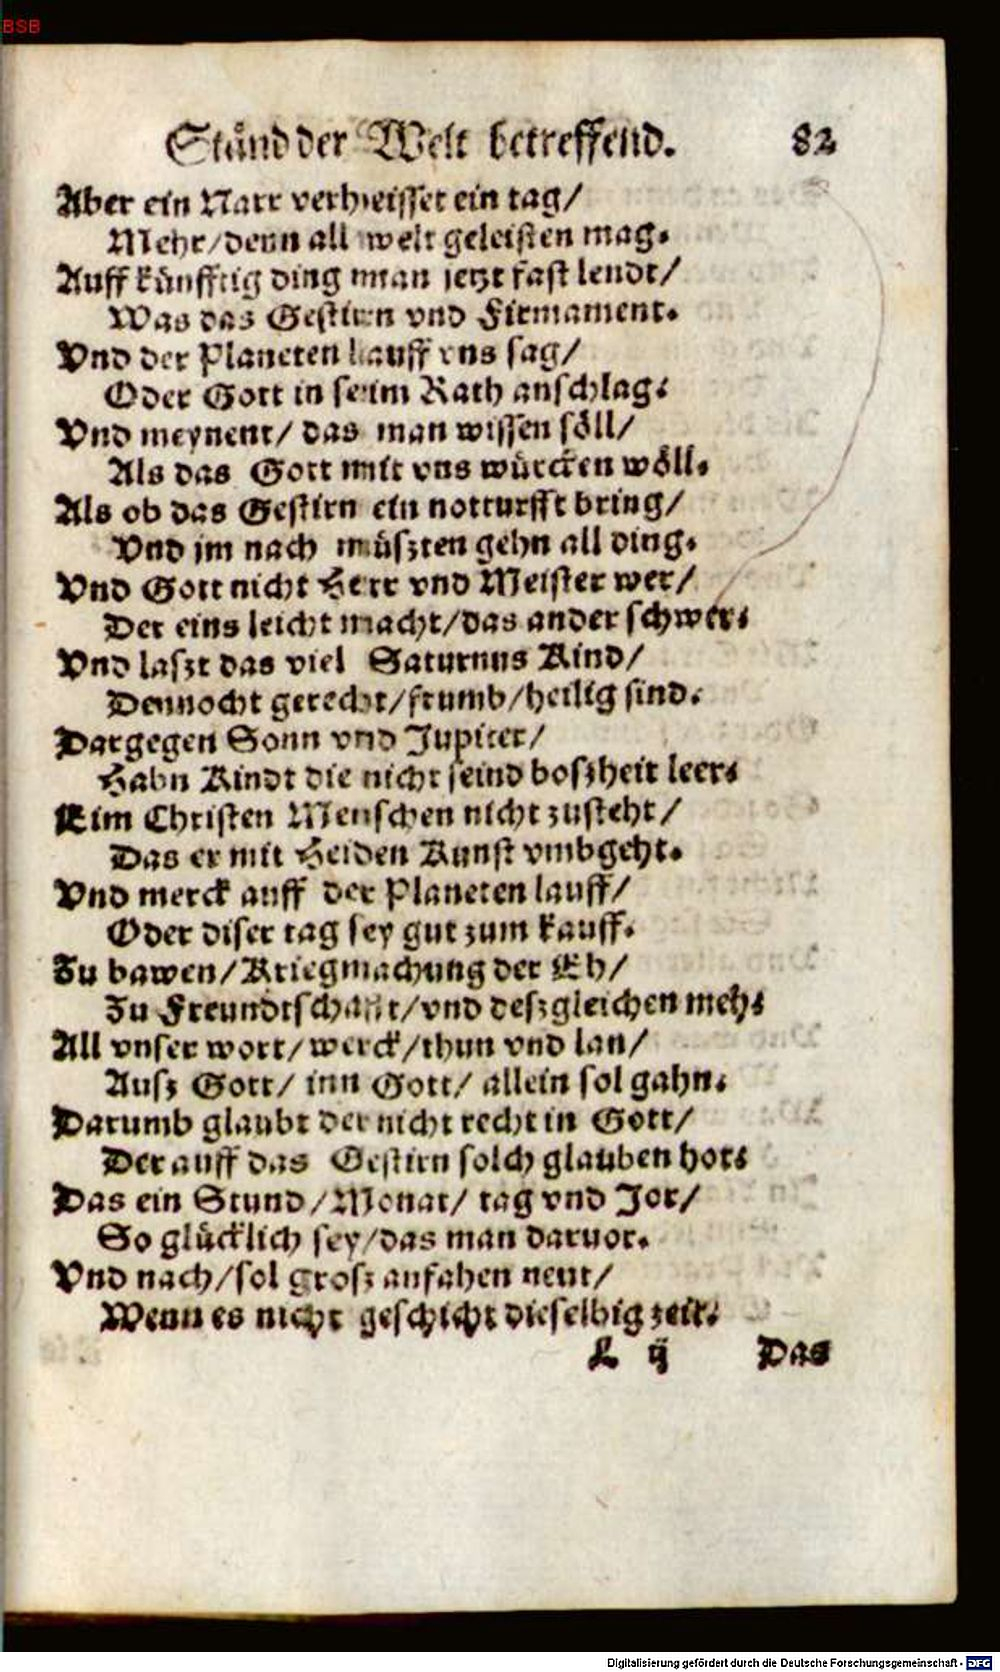 BSB
Stånd der Welt betreffend. 82
Aber ein Narr verheisset ein tag/
Mehr/denn all welt geleisten mag.
Auff künfftig ding man jetzt fast lendt/
Was das Gestirn vnd Firmament.
Vnd der Planeten lauff vns sag/
Oder Gott in seim Rath anschlag:
Vnd meynent/ das man wissen söll/
Als das Gott mit vns würcken wöll.
Als ob das Gestirn ein notturfft bring/
Vnd jm nach müszten gehn all ding.
Vnd Gott nicht Herr vnd Meister wer/
Der eins leicht macht/das ander schwer:
Vnd laszt das viel Saturnus Kind/
Dennocht gerecht/frumb/heilig sind.
Dargegen Sonn vnd Jupiter/
Habn Kindt die nicht seind boszheit leer:
Eim Christen Menschen nicht zusteht/
Das er mit Heiden Kunst vmbgeht.
Vnd merck auff der Planeten lauff/
Oder diser tag sey gut zum kauff.
Zu bawen/Kriegmachung der Eh/
Zu Freundtschafft/vnd deszgleichen meh:
All vnser wort/werck/thun vnd lan/
Ausz Gott/ inn Gott/ allein sol gahn:
Darumb glaubt der nicht recht in Gott/
Der auff das Gestirn solch glauben hot:
Das ein Stund/Monat/ tag vnd Jor/
So glücklich sey/das man daruor.
Vnd nach/sol grosz anfahen neut/
Wenn es nicht geschicht dieselbig zeit:
L ij Das
Digitalisierung gefördert durch die Deutsche Forschungsgemeinschaft - DFG